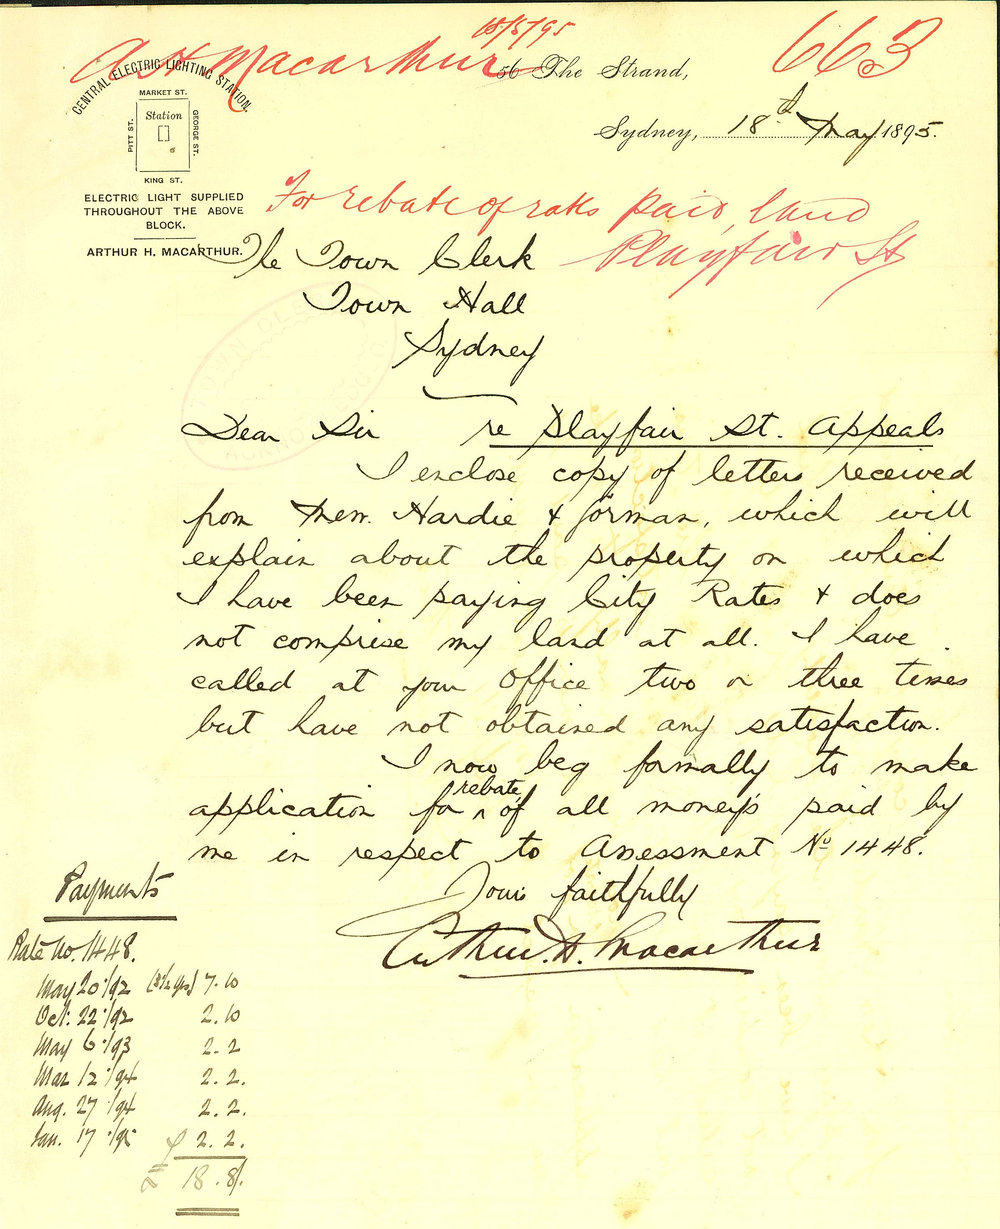 18/5/95
A H Macarthur
663
CENTRAL ELECTRIC LIGHTING STATION.
MARKET ST.
PITT ST.
Station
GEORGE ST.
KING ST.
ELECTRIC LIGHT SUPPLIED
THROUGHOUT THE ABOVE
BLOCK.
ARTHUR H. MACARTHUR.
56 The Strand,
Sydney, 18th May 1895.
For rebate of rates paid, land
Playfair St
The Town Clerk
Town Hall
Sydney
Dear Sir re Playfair St. Appeals
I enclose copy of letters received
from Messrs. Hardie & Gorman, which will
explain about the property on which
I have been paying City Rates & does
not comprise my land at all. I have
called at your Office two or three times
but have not obtained any satisfaction.
I now beg formally to make
rebate
application for ^ of all money's paid by
me in respect to Assessment No 1448.
Yours faithfully
Arthur. H. Macarthur
Payments
Rate No. 1448.
May 20/92 (3½ yrs) 7.10
Oct. 22/92 2.10
May 6/93 2.2
Mar 12/94 2.2.
Aug. 27/94 2.2.
Jan. 17/95 2.2.
18.8/.